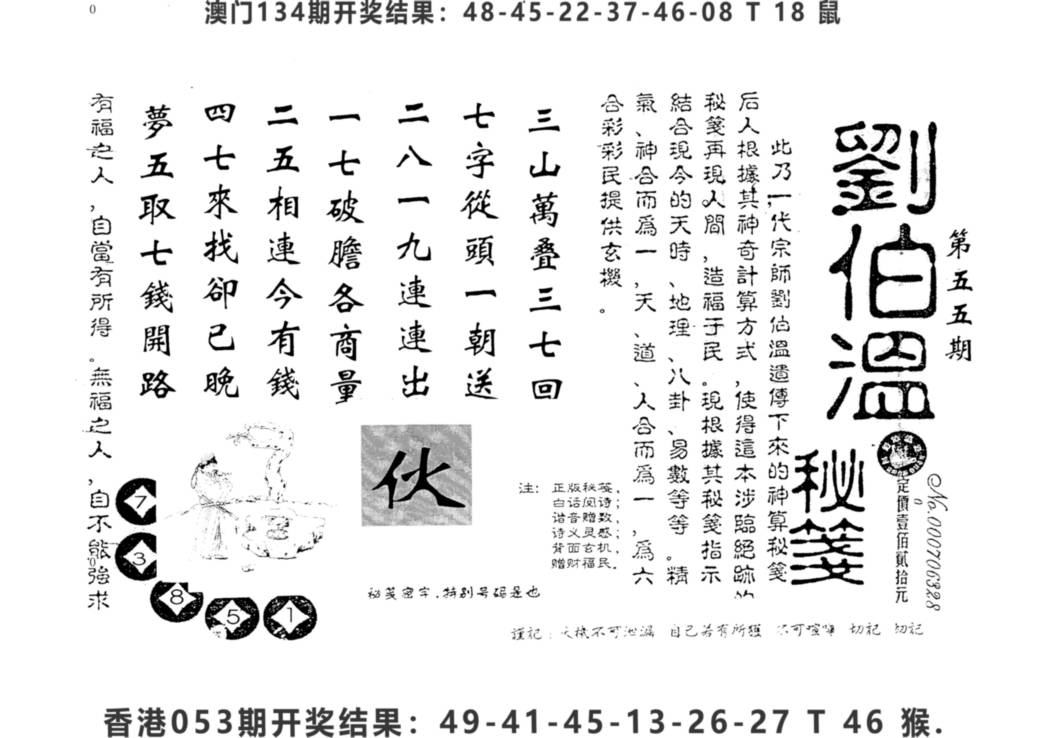 0
澳门134期开奖结果：48-45-22-37-46-08 T 18 鼠
第五五期
劉伯溫
秘箋
定價壹佰貳拾元
No.000706328
此乃一代宗師劉伯溫遺傳下來的神算秘箋
后人根據其神奇計算方式，使得這本涉臨絕跡的
秘箋再現人間，造福于民。現根據其秘箋指示
結合現今的天時、地理、八卦、易數等等。精
氣、神合而爲一，天、道、人合而爲一，爲六
合彩彩民提供玄機。
三山萬叠三七回
七字從頭一朝送
二八一九連連出
一七破膽各商量
二五相連今有錢
四七來找卻已晚
夢五取七錢開路
有福之人，自當有所得。無福之人，自不能強求
伙
注：正版秘笺，
白话阅诗；
谐音赠数，
诗义灵感；
背面玄机，
赠财福民。
秘笺密字，特别号码是也
7
3
8
5
1
謹記：天機不可泄漏 自己若有所獲 不可喧嘩 切記 切記
香港053期开奖结果：49-41-45-13-26-27 T 46 猴.